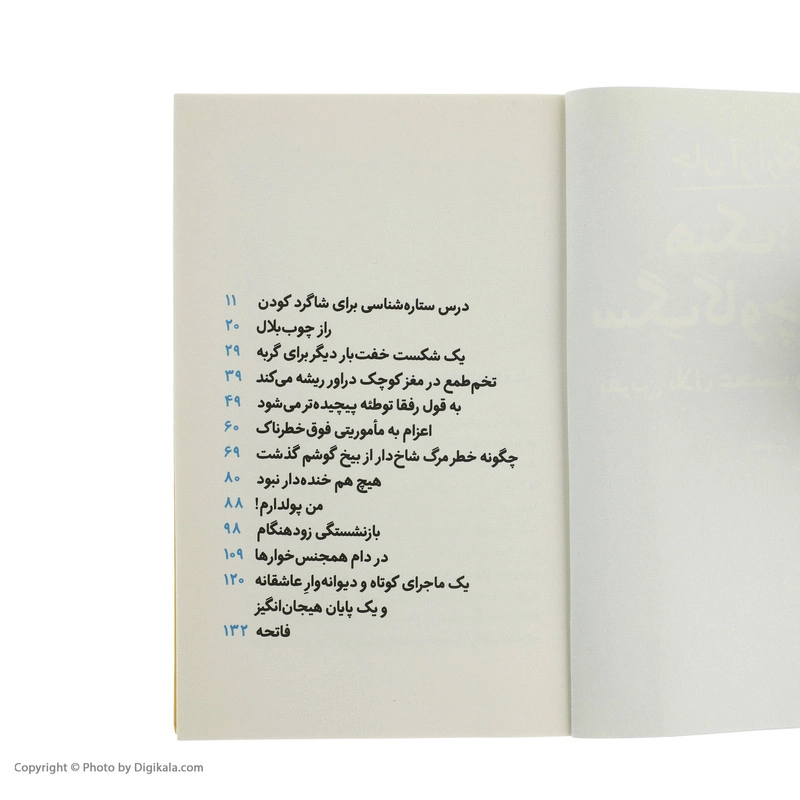 درس ستاره‌شناسی برای شاگرد کودن ۱۱
راز چوب‌بلال ۲۰
یک شکست خفت‌بار دیگر برای گربه ۲۹
تخم‌طمع در مغز کوچک دراور ریشه می‌کند ۳۹
به قول رفقا توطئه پیچیده‌تر می‌شود ۴۹
اعزام به مأموریتی فوق‌خطرناک ۶۰
چگونه خطر مرگ شاخ‌دار از بیخ گوشم گذشت ۶۹
هیچ هم خنده‌دار نبود ۸۰
من پولدارم! ۸۸
بازنشستگی زودهنگام ۹۸
در دام همجنس‌خوارها ۱۰۹
یک ماجرای کوتاه و دیوانه‌وارِ عاشقانه ۱۲۰
و یک پایان هیجان‌انگیز
فاتحه ۱۳۲
هنک
Copyright © Photo by Digikala.com